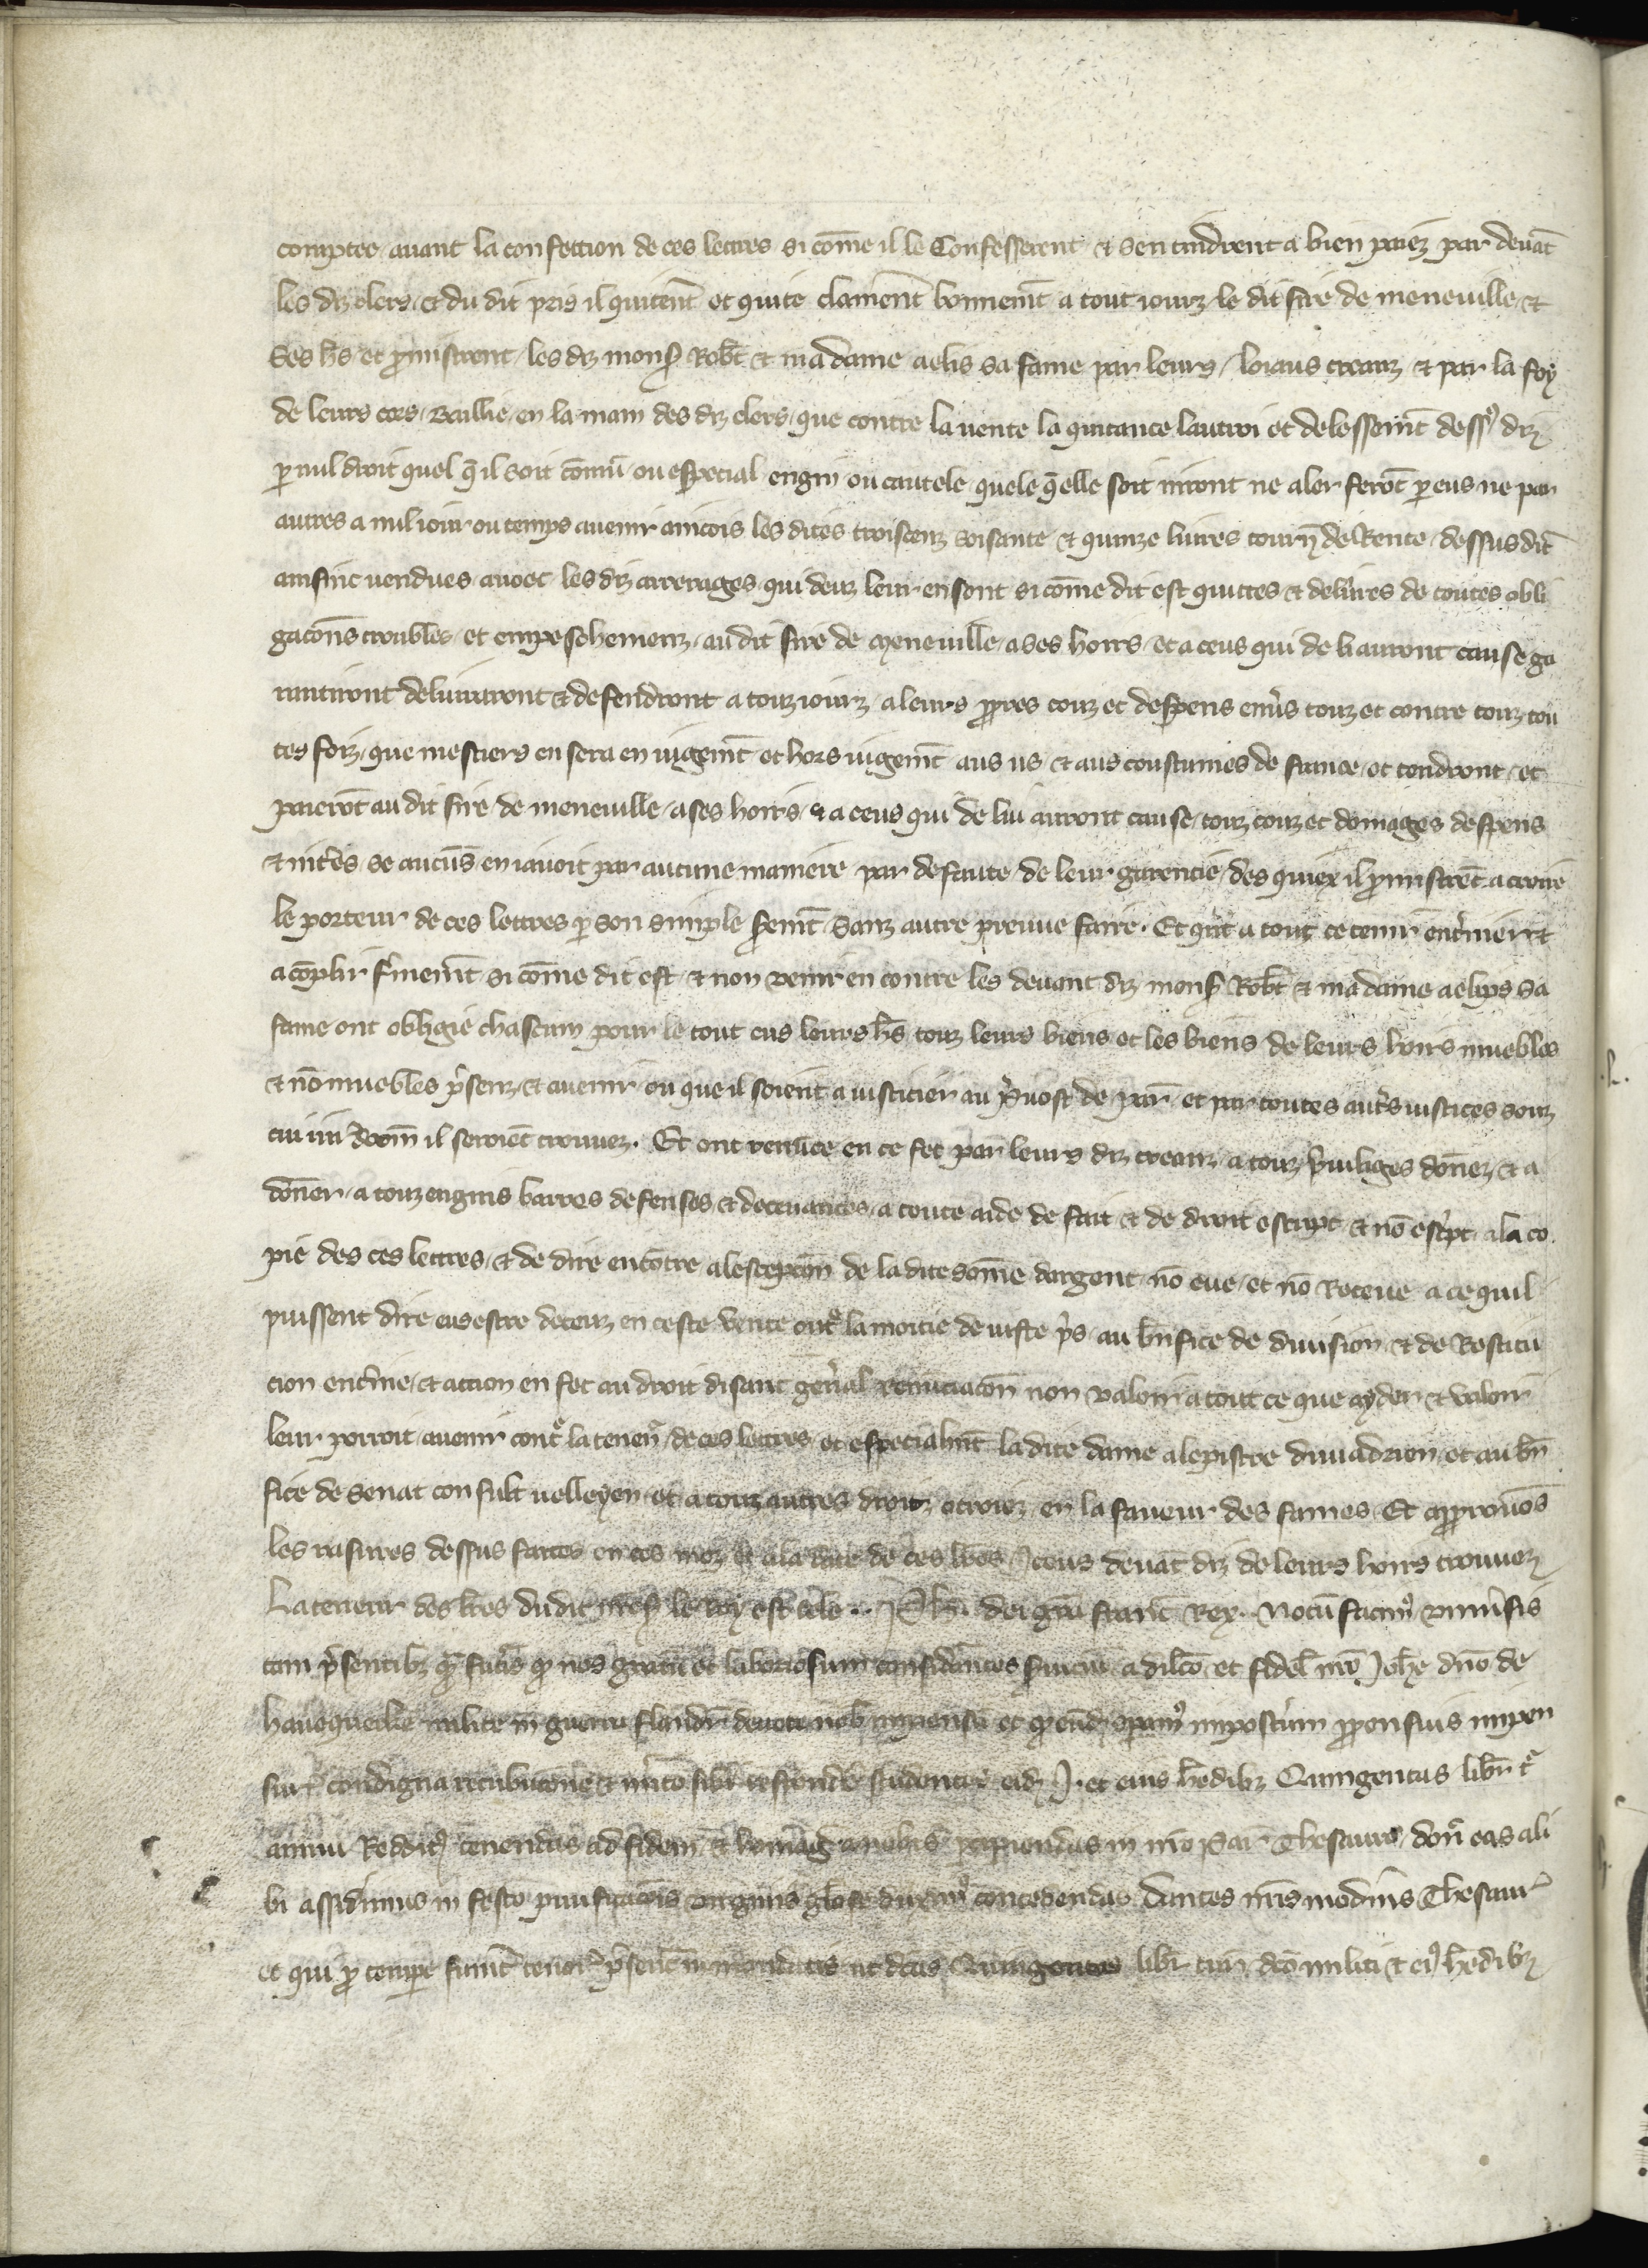 comptee auant la confection de ces lettres si cōme il le Confesserent et sen tindrent a bien paiez par deuāt
les diz clers et du dit pris il quiterēt et quite clamerēt bonnemēt a tout iourz le dit sire de meneuille et
Ses hs et ꝓmistrent les diz monsʳ Robt et madame aelis sa fame par leurs loiaus creanz et par la foy
de leurs cors baillie en la main des diz clers que contre la uente la quitance lautroi et delessemēt dessꝰ diz
ꝑ nul droit quel qē il soit cōmū ou especial engin ou cautele quele qē elle soit niront ne aler ferōt ꝑ eus ne par
autres a nul iour ou temps auenir ancois les dites troiscenz soisante et quinze liures tourn̄ de Rente dessus dit̄
ainsinc uendues auoec les diz arrerages qui deuz leur en sont si cōme dit est quittes et deliures de toutes obli
gacōns troubles et empeschemenz au dit sire de meneuille a ses hoirs et a ceus qui de li auront cause ga
rantiront deliuiuront et defendront a touz iourz a leurs ꝓpres couz et despens enu̾s touz et contre touz tou
tes foiz que mestiers en sera en iugemēt et hors iugemēt aus us et aus coustumes de france et rendront et
paierōt au dit sire de meneuille a ses hoirs et a ceus qui de lui auront cause touz couz et domages despens
et int̾es se aucūs en iauoit par aucune maniere par defaute de leur garentie des quiex il ꝓmistrēt a croire
le porteur de ces lettres ꝑ son simple sʳemēt sanz autre preuue faire. Et qͣnt a tout ce tenir ent̾iner et
acōplir f̾mement si cōme dit est et non venir en contre les deuant diz monsʳ Robt et madame aelips sa
fame ont obligie chascun pour le tout eus leurs hs touz leurs biens et les biens de leurs hoirs muebles
et nō muebles p̾senz et auenir ou que il soient a iusticier au p̾uost de par̄ et par toutes aut̾s iustices souz
cui iur̄dicōn il seroiēt trouuez. Et ont renūce en ce fet par leurs diz creanz a touz p̾uileges dōnez et a
dōner a touz engins barres defenses et deceuances a toute aide de fait et de droit escript et nō esc̾pt a la co
pie des ces lettres et de dire encōtre a lescepcōn de la dite sōme dargent nō eue et nō Receue a ce quil
puissent dire eus estre deceuz en ceste vente out̾ la moitie de iuste p̾s au bn̄fice de diuision et de Restitu
cion ent̾ine et accion en fet au droit disant gen̾al renūciacōn non valoir a tout ce que ayder et valoir
leur porroit auenir cont̾ la teneur̄ de ces lettres et especialmēt la dite dame a lepistre diuiadrien et au bn̄
fice de senat consult uelleyen et a touz autres droiz otroiez en la faueur des fames Et approuuōs
les rasures dessus faites en ces moz et a la date de ces lr̄es ceus deuāt diz de leurs hoirs trouuez
La teneur des lr̄es du dit nr̄e sʳ le Roy est tele .. Ph. dei gr̄a franc̄ Rex. Notū facimꝰ vniu̾sis
tam p̾sentibꝫ qͣ futuris qͦ nos gratū et laboriosum considerantes seruiciū a dilc̄o et fideli nr̄o Joh̄e dn̄o de
hauesquerke milite in guerra flandr̄ deuote nob̄ impensū et qͦd eūdē speramꝰ imposterum ꝓpensius impen
sur̄ condigna retribucōne et m̾ito sibi respondere studentes eidē J. et eius h̾edibꝫ Quingentas libr̄ t̄
annui Redditꝰ tenendas ad fidem et homag̾ a nobis percipiendas in nr̄o par̄ Thesauro don̾ eas ali
bi assidmus in festo purificacōis virginis gl̄ose duximꝰ concedendas. Dantes nr̄is modernis Thesaur̄
et qui ꝓ tempe fuerīt tenor̄ p̾sent̄ in mandatis ut dictas Quingentas libr̄ tur̄ dc̄o militi et eiꝰ h̾edibꝫ